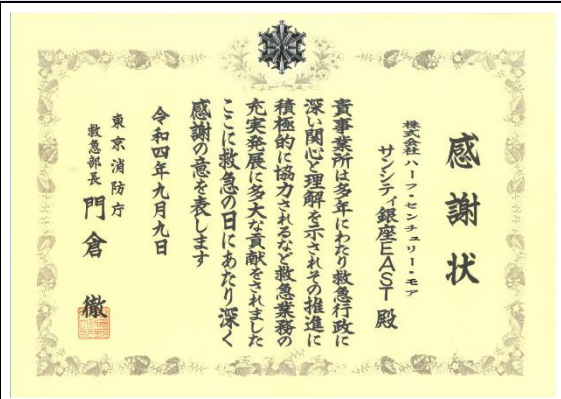 感謝状
株式会社ハーフ・センチュリー・モア
サンシティ銀座EAST 殿
貴事業所は多年にわたり救急行政に
深い関心と理解を示されその推進に
積極的に協力されるなど救急業務の
充実発展に多大な貢献をされました
ここに救急の日にあたり深く
感謝の意を表します
令和四年九月九日
東京消防庁
救急部長 門倉 徹